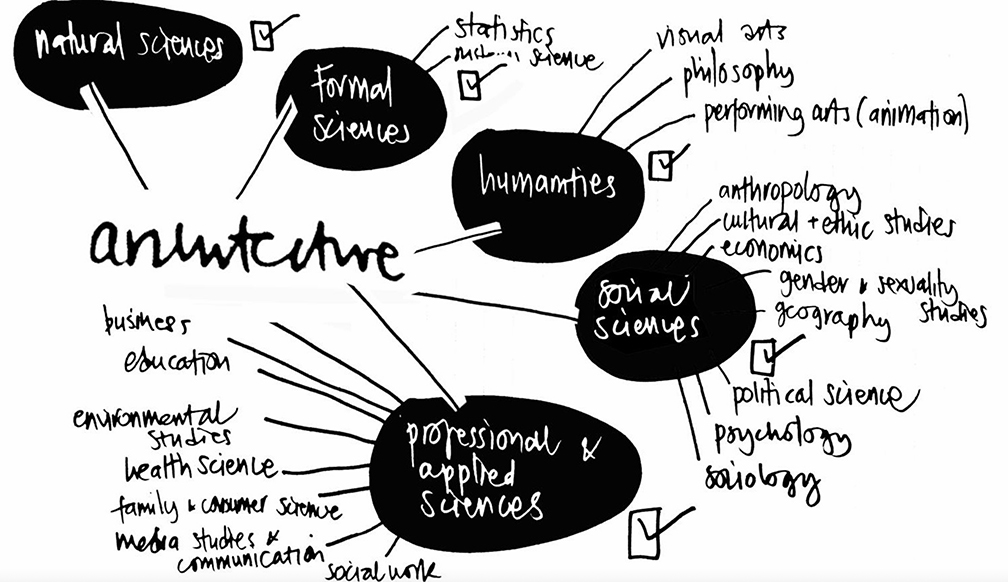 natural sciences
Formal
sciences
statistics
science
humanities
visual arts
philosophy
performing arts (animation)
architecture
social
sciences
anthropology
cultural + ethic studies
economics
gender & sexuality
studies
geography
political science
psychology
sociology
professional &
applied
sciences
business
education
environmental
studies
health science
family & consumer science
media studies &
communication
social work